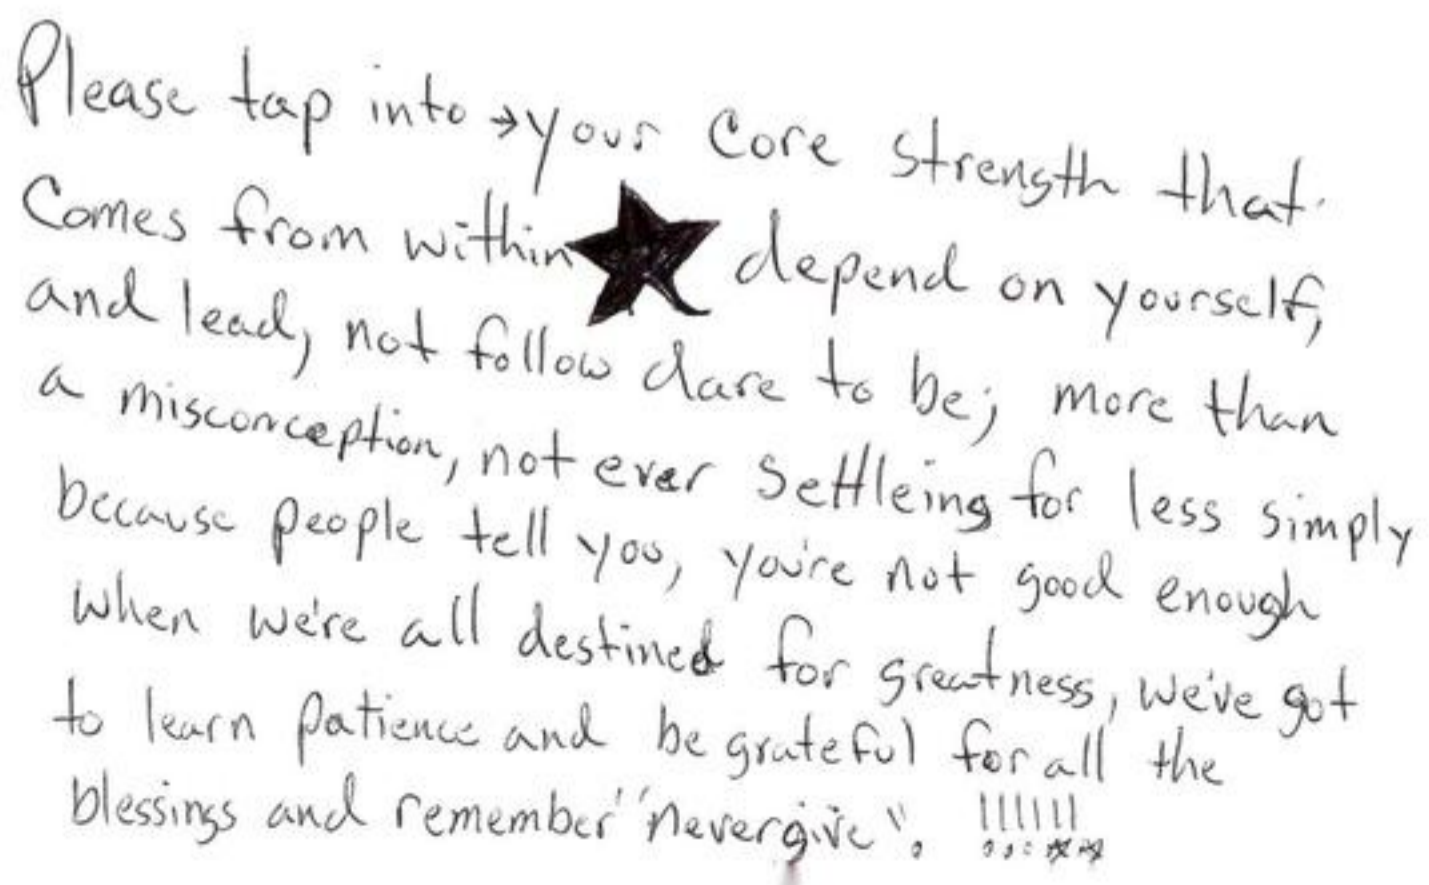 Please tap into →your Core strength that
Comes from within ★ depend on yourself,
and lead, not follow dare to be; more than
a misconception, not ever settleing for less simply
because people tell you, you're not good enough
when we're all destined for greatness, we've got
to learn patience and be grateful for all the
blessings and remember" "never give". !!!!!!